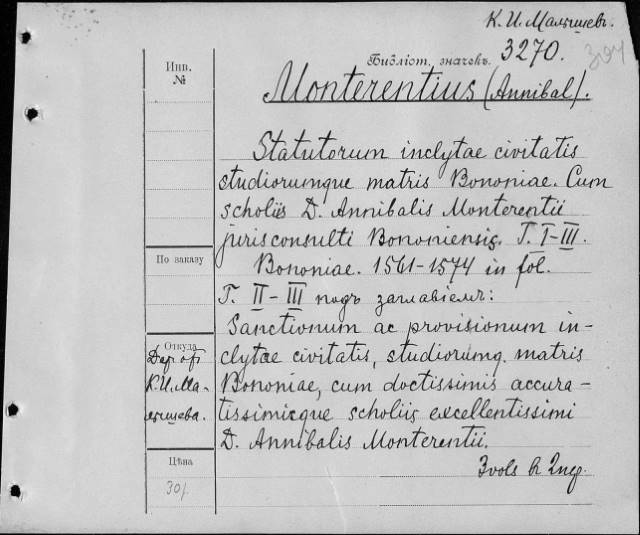 К. И. Малышевъ.
Библіот. значекъ.
3270.
394
Инв.
№
Monterentius (Annibal).
Statutorum inclytae civitatis
studiorumque matris Bononiae. Cum
scholiis D. Annibalis Monterentii
jurisconsulti Bononiensis. T. I-III.
По заказу
Bononiae. 1561-1574 in fol.
T. II-III подъ заглавіемъ:
Sanctionum ac provisionum in-
Откуда
Дар от
К. И. Ма-
лышева.
clytae civitatis, studiorumq. matris
Bononiae, cum doctissimis accura-
tissimisque scholiis excellentissimi
D. Annibalis Monterentii.
Цѣна
30р.
3 vols